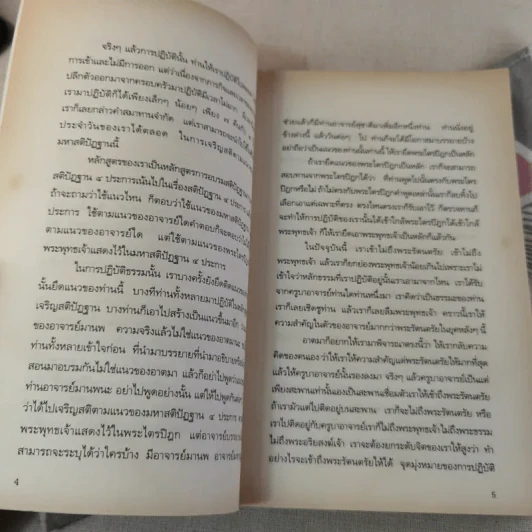 จริงๆ แล้วการปฏิบัตินั้น ท่านให้เราปฏิบัติ
การเข้าและไม่มีการออก แต่ว่าเนื่องจากภารกิจ
ปลีกตัวออกมาจากครอบครัวมาปฏิบัติมีเวลาไม่มาก
เรามาปฏิบัติก็ได้เพียงเล็กๆ น้อยๆ เพียง ๗ คืน
เราก็เลยกล่าวคำสมาทานจำกัด แต่เราสามารถ
ประจำวันของเราได้ตลอด ในการเจริญสติตาม
มหาสติปัฏฐานนี้
หลักสูตรของเราเป็นหลักสูตรการอบรมสติปัฏฐาน
สติปัฏฐาน ๔ ประการเน้นไปในเรื่องสติปัฏฐาน ๔
ถ้าจะถามว่าใช้แนวไหน ก็ตอบว่าใช้แนวของมหาสติปัฏฐาน
ประการ ใช้ตามแนวของอาจารย์ใดคำตอบก็จะตอบ
ตามแนวของอาจารย์ใด แต่ใช้ตามแนวของพระ
พระพุทธเจ้าแสดงไว้ในมหาสติปัฏฐาน ๔ ประการ
ในการปฏิบัติธรรมนั้น เราบางครั้งยังยึดติด
นั้นยึดแนวของท่านนี้ บางทีท่านทั้งหลายมาปฏิบัติใน
เจริญสติปัฏฐาน บางท่านก็เอาไปสร้างเป็นแนวขึ้นมาอีก
ของอาจารย์มานพ ความจริงแล้วไม่ใช่แนวของ
ท่านทั้งหลายเข้าใจก่อน ที่นำมาบรรยายที่นำมาอธิบาย
สอนมาอบรมกันไม่ใช่แนวของอาตมา แล้วก็อย่าไปพูดว่า
ท่านอาจารย์มานพนะ อย่าไปพูดอย่างนั้น แต่ให้ไปพูด
ว่าได้ไปเจริญสติตามแนวของมหาสติปัฏฐาน ๔ ประการ
พระพุทธเจ้าแสดงไว้ในพระไตรปิฎก แต่อาจารย์
สามารถจะระบุได้ว่าใครบ้าง มีอาจารย์มานพ อาจารย์
4
ช่วยแล้วก็มีท่านอาจารย์สุชาติมาเพิ่มอีกหนึ่งท่าน ท่านนั่งอยู่
ข้างล่างนี้ แล้ววันต่อๆ ไป ท่านก็จะได้มีโอกาสมาบรรยายบ้าง
อย่ายึดว่าเป็นแนวของท่านนั้นท่านนี้ ให้เรายึดพระไตรปิฎกเป็นหลัก
ถ้าเรายึดแนวของพระไตรปิฎกเป็นหลัก เราก็จะสามารถ
สอบทานจากพระไตรปิฎกได้ว่า ที่ท่านพูดไปนั้นตรงกับพระไตร
ปิฎกหรือไม่ ถ้าไม่ตรงกับพระไตรปิฎกคำพูดเหล่านั้นเราก็ลบทิ้งไป
เลือกเอาแต่เฉพาะที่ตรง ตรงไหนตรงเราก็รับเอาไว้ ก็ตรวจทานก็
จะทำให้การปฏิบัติของเรานั้นได้เข้าใกล้พระไตรปิฎกได้เข้าใกล้
พระพุทธเจ้า ก็ให้เรายึดเอาพระพุทธเจ้าเป็นหลักก็แล้วกัน
ในปัจจุบันนี้ เราเข้าไม่ถึงพระรัตนตรัย เข้าไม่ถึง
พระพุทธเจ้า แล้วเราก็ยกย่องพระพุทธเจ้าน้อยเกินไปเพราะเราไม่
เข้าใจว่าหลักธรรมที่เราปฏิบัติอยู่นั้นเรามาจากไหน เราได้รับ
จากครูบาอาจารย์ท่านใดท่านหนึ่งมา เราคิดว่าเป็นธรรมะของท่าน
เราก็เลยเชิดชูท่าน แล้วเราก็เลยลืมพระพุทธเจ้า คราวนี้เราให้
ความสำคัญในตัวของอาจารย์มากกว่าพระรัตนตรัยในยุคหลังๆ นี้
อาตมาก็อยากให้เรามาพิจารณาตรงนี้ว่า ให้เรากลับความ
คิดของตนเอง ว่าให้เราให้ความสำคัญแด่พระรัตนตรัยให้มากที่สุด
แล้วครูบาอาจารย์นั้นรองลงมา จริงๆ แล้วครูบาอาจารย์เป็นแค่
เพียงสะพานเท่านั้นเองเป็นสะพานเชื่อมตัวเราให้เข้าถึงพระรัตนตรัย
ถ้าเรามัวแต่ไปติดอยู่บนสะพาน เราก็จะไม่ถึงพระรัตนตรัย หรือ
เราไปติดอยู่กับครูบาอาจารย์เราก็ไม่ถึงพระพุทธเจ้าไม่ถึงพระธรรม
ไม่ถึงพระอริยสงฆ์เจ้า เราจะต้องยกระดับจิตของเราให้สูงว่า ทำ
อย่างไรจะเข้าถึงพระรัตนตรัยให้ได้ จุดมุ่งหมายของการปฏิบัติ
5